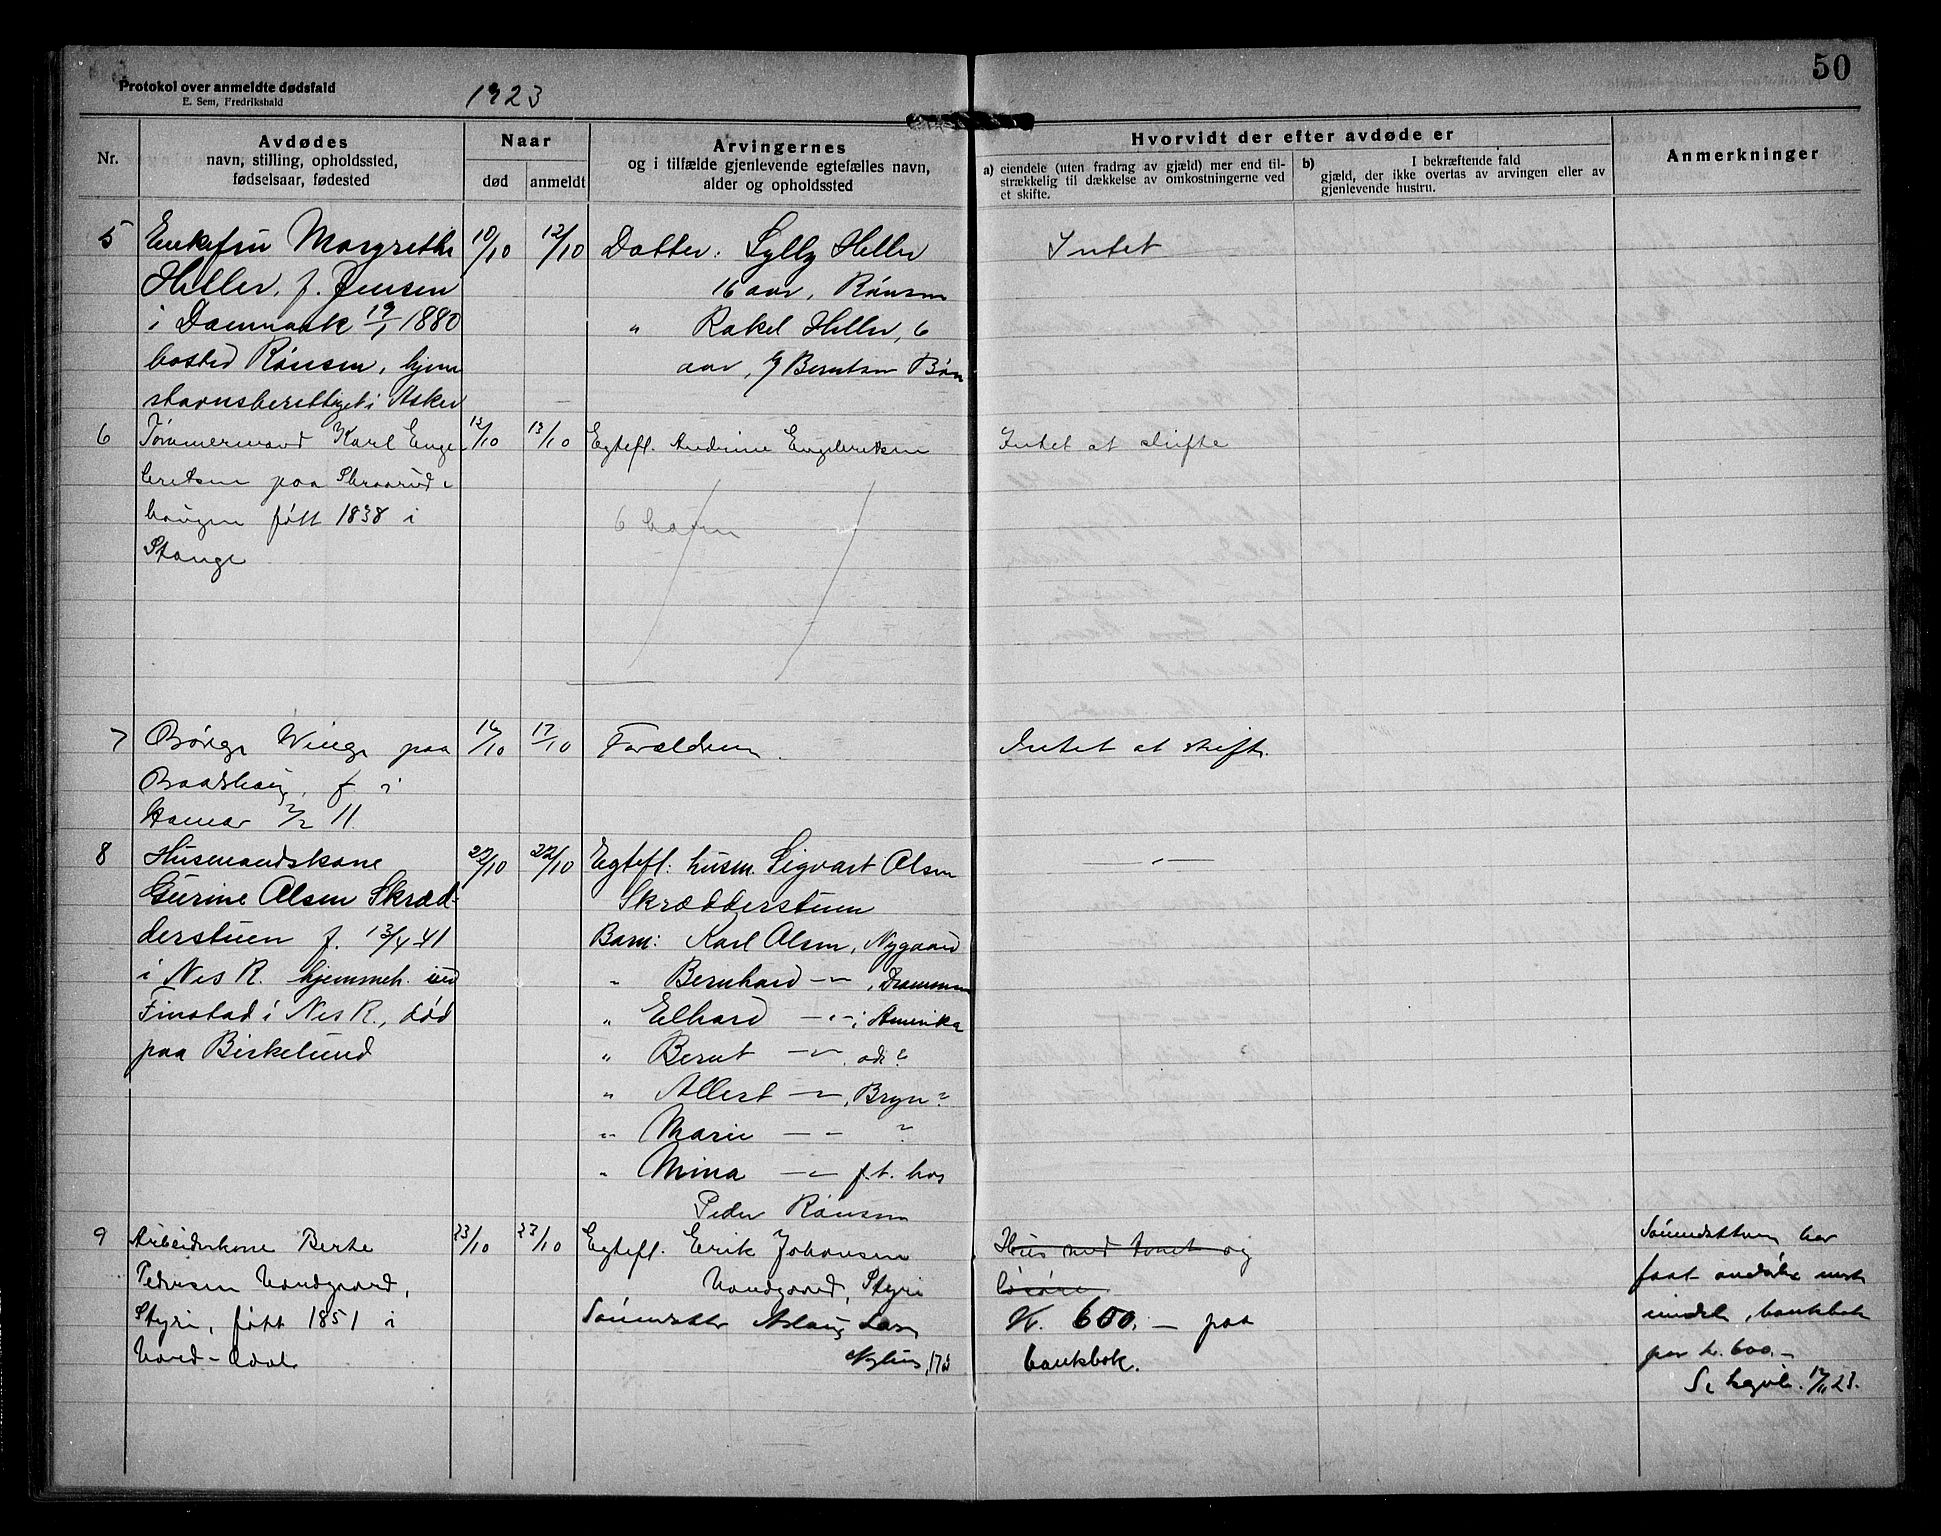 50
Protokol over anmeldte dødsfald
E. Sem, Fredrikshald
1923
Nr.
Avdødes
navn, stilling, opholdssted,
fødselsaar, fødested
Naar
død
anmeldt
Arvingernes
og i tilfælde gjenlevende egtefælles navn,
alder og opholdssted
Hvorvidt der efter avdøde er
a) eiendele (uten fradrag av gjæld) mer end til-
strækkelig til dækkelse av omkostningerne ved
et skifte.
b) I bekræftende fald
gjæld, der ikke overtas av arvingen eller av
gjenlevende hustru.
Anmerkninger
5
Enkefru Margrethe
Heller, f. Jensen
i Danmark 19/1 1880
bosted Rånsen, hjem
stavnsberettiget i Asker
10/10
12/10
Datter: Sylly Heller
16 aar, Rånsen
" Rakel Heller, 6
aar, Berntsen
Intet
6
Tømmermand Karl Enge-
bretsen paa
haugen født 1838 i
Stange
12/10
13/10
Egtefl. Andrine Engebretsen
6 barn
Intet at skifte
7
Børge Winge paa
Baadshaug, f. i
Hamar 2/2 11.
16/10
17/10
Forældrene.
Intet at skifte
8
Husmandskone
Gurine Olsen Skræd-
derstuen f. 13/4 41
i Nes R. hjemmeh. ved
Finstad i Nes R., død
paa Birkelund
22/10
22/10
Egtefl. husm. Sigvart Olsen
Skrædderstuen
Barn: Karl Olsen, Nygaard
" Bernhard -"-, Drammen
" Elhard -"- i Amerika
" Bernt -"-
" Albert -"-, Bryn?
" Marie -"- ?
" Mina -"- f.t. hos
Peder Rånsen
-"-
9
Arbeiderkone Berte
Pedersen Vandgaard,
Styri, født 1851 i
Nord-Odal
23/10
27/10
Egtefl. Erik Johansen
Vandgaard, Styri
Sønnedatter Aslaug
17 å
Hus med tomt og
løsøre
Kr. 600.- paa
bankbok.
Sønnedatteren har
faat
bankbok
paa kr. 600.-
23.